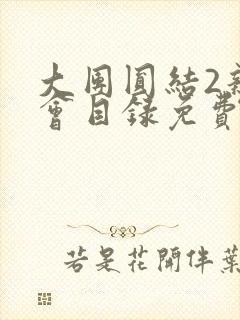 大團圓結2新
會目錄免費
若是花開伴葉